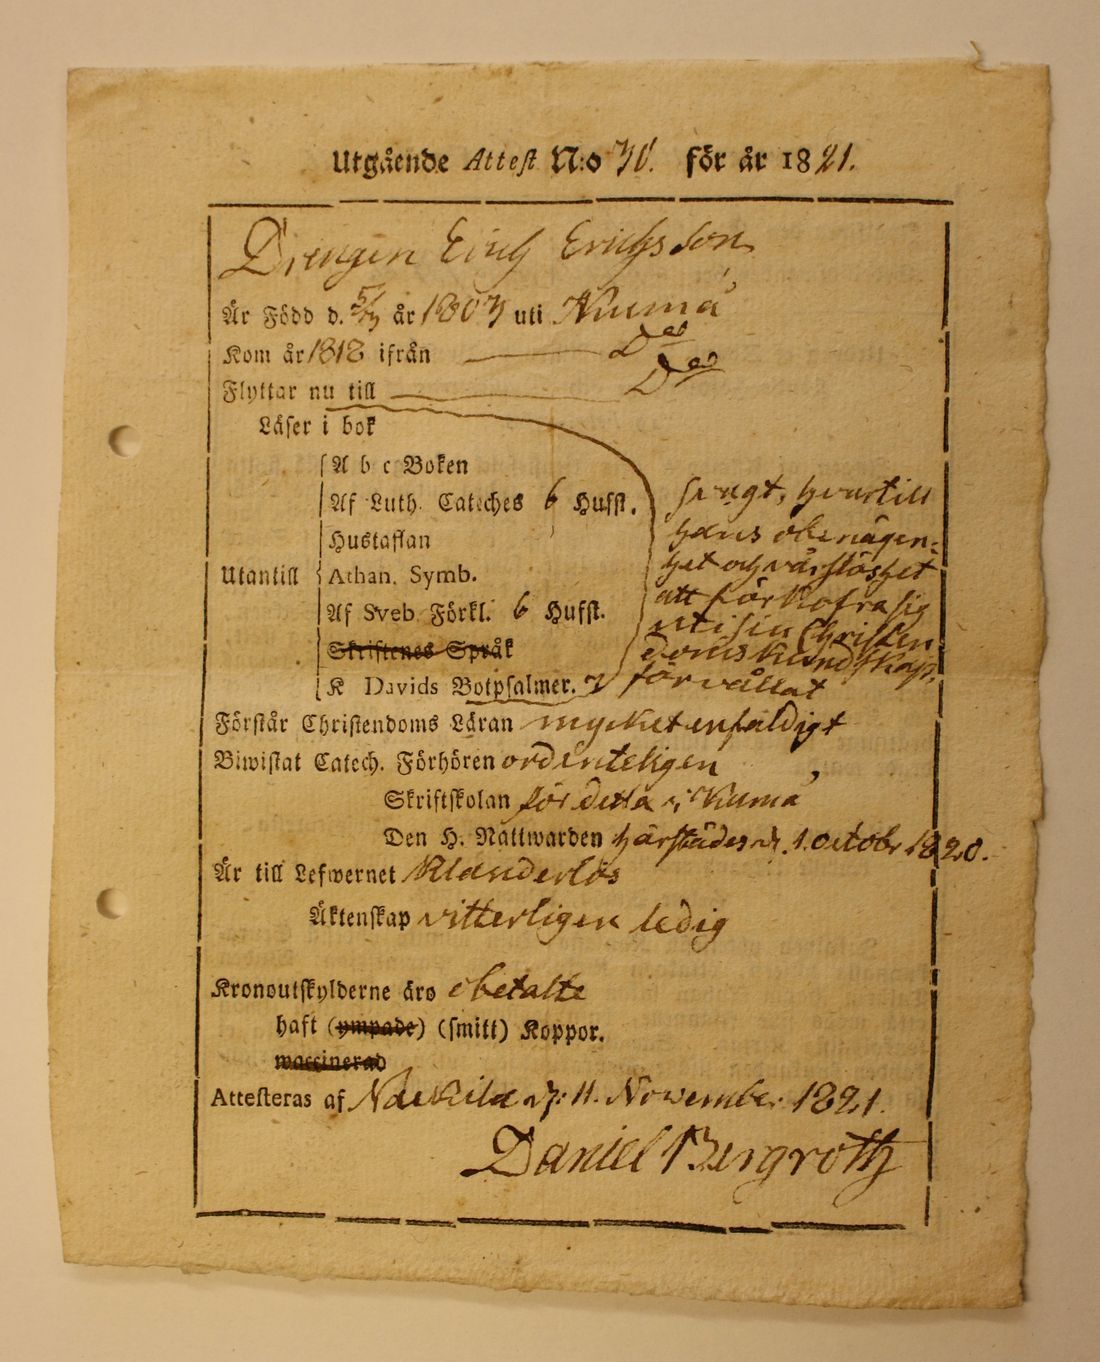 Utgående Attest N:o 70. för år 1821.
Drengen Erich Erichsson
Är Född d. 5/7 år 1803 uti Kiuma
Kom år 1818 ifrån Do
Flyttar nu till Do
Läser i bok
A b c Boken
Af Luth. Cateches 6 Hufst.
Hustaflan
Utantill Athan. Symb.
Af Sveb. Förkl. 6 Hufst.
Skriftenes Språk
K Davids Botpsalmer. 7
svagt, hvartill
hans obenägen-
het och vårslöshet
att förkofra sig
uti sin Christen
doms kundskap,
förvållat
Förstår Christendoms Läran mycket enfaldigt
Biwistat Catech. Förhören ordenteligen
Skriftskolan för detta i Kiuma
Den H. Nattwarden härstädes d. 1. octobr 1820.
Är till Lefwernet Klanderlös
Äktenskap vitterligen ledig
Kronoutskylderne äro obetalte
haft (ympade) (smitt) Koppor.
waccinerad
Attesteras af Nackila d: 11. November 1821.
Daniel Bergroth